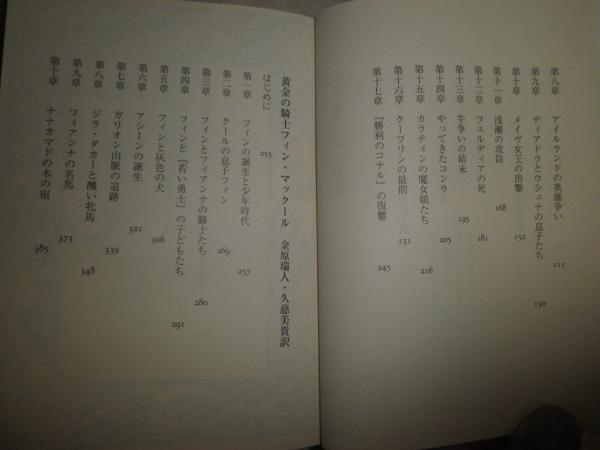 第八章 アイルランドの英雄争い 111
第九章 ディアドラとウシュナの息子たち 130
第十章 メイヴ女王の出撃 152
第十一章 浅瀬の攻防 168
第十二章 フェルディアの死 181
第十三章 牛争いの結末 195
第十四章 やってきたコンラ 205
第十五章 カラティンの魔女娘たち 216
第十六章 クーフリンの最期 231
第十七章 『勝利のコナル』の復讐 245
黄金の騎士フィン・マックール 金原瑞人・久慈美貴訳
はじめに 255
第一章 フィンの誕生と少年時代 257
第二章 クールの息子フィン 269
第三章 フィンとフィアンナの騎士たち 280
第四章 フィンと『若い勇士』の子どもたち 291
第五章 フィンと灰色の犬 306
第六章 アシーンの誕生 321
第七章 ガリオン山脈の追跡 339
第八章 ジラ・ダカーと醜い牝馬 348
第九章 フィアンナの名馬 373
第十章 ナナカマドの木の宿 385